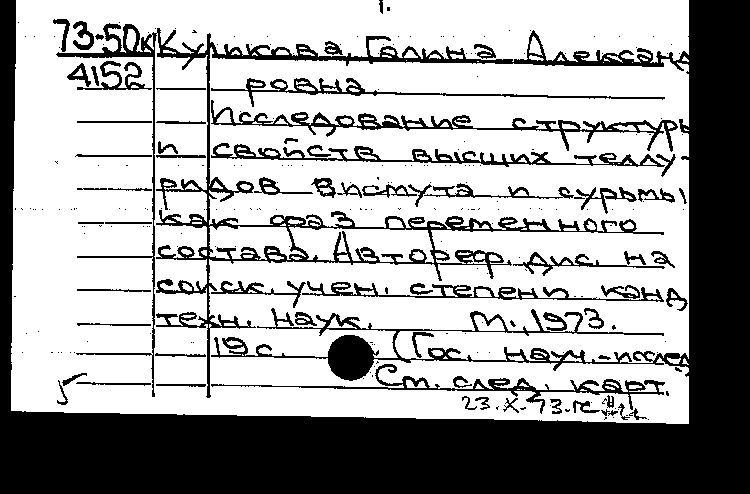 1.
73-50к Куликова, Галина Александ
4152 ровна.
Исследование структуры
и свойств высших теллу-
ридов висмута и сурьмы
как фаз переменного
состава. Автореф. дис. на
соиск. учен. степени канд
техн. наук. М., 1973.
19 с. (Гос. науч.-исслед
См. след. карт.
23.X-73.